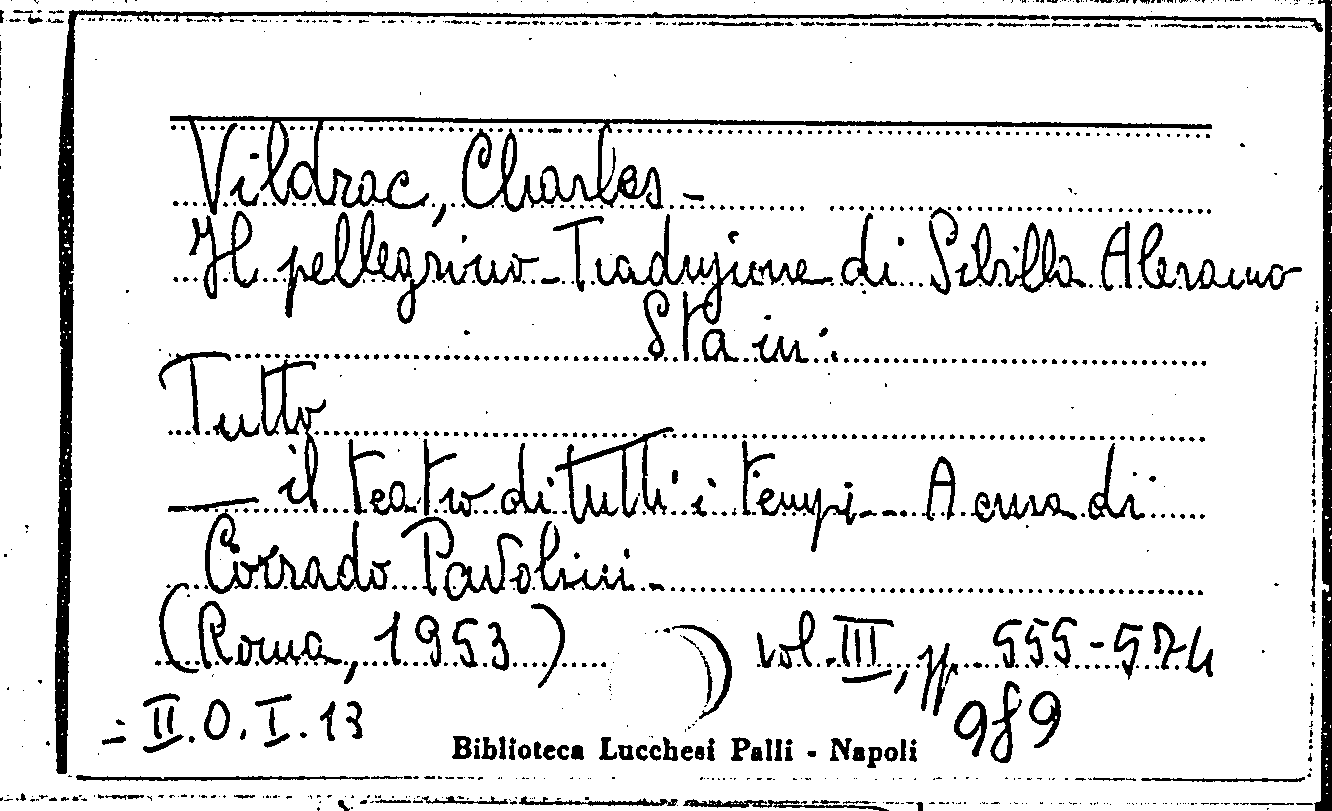 Vildrac, Charles -
Il pellegrino - Traduzione di Sibilla Aleramo
Sta in:
Tutto
— il teatro di tutti i tempi - A cura di
Corrado Pavolini -
(Roma, 1953) vol. III, pp. 555-574
= II.O.I.13
Biblioteca Lucchesi Palli - Napoli